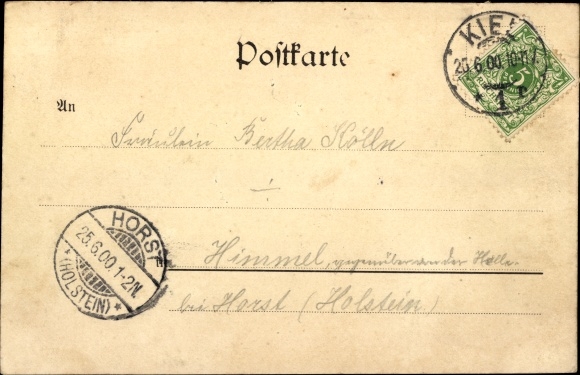 Postkarte
KIEL
25.6.00.10-11V.
* 1 r
5
An
Fräulein Bertha Kölln
HORST
25.6.00.1-2N.
* (HOLSTEIN) *
Himmel, gegenüber von der Hölle
bei Horst (Holstein)